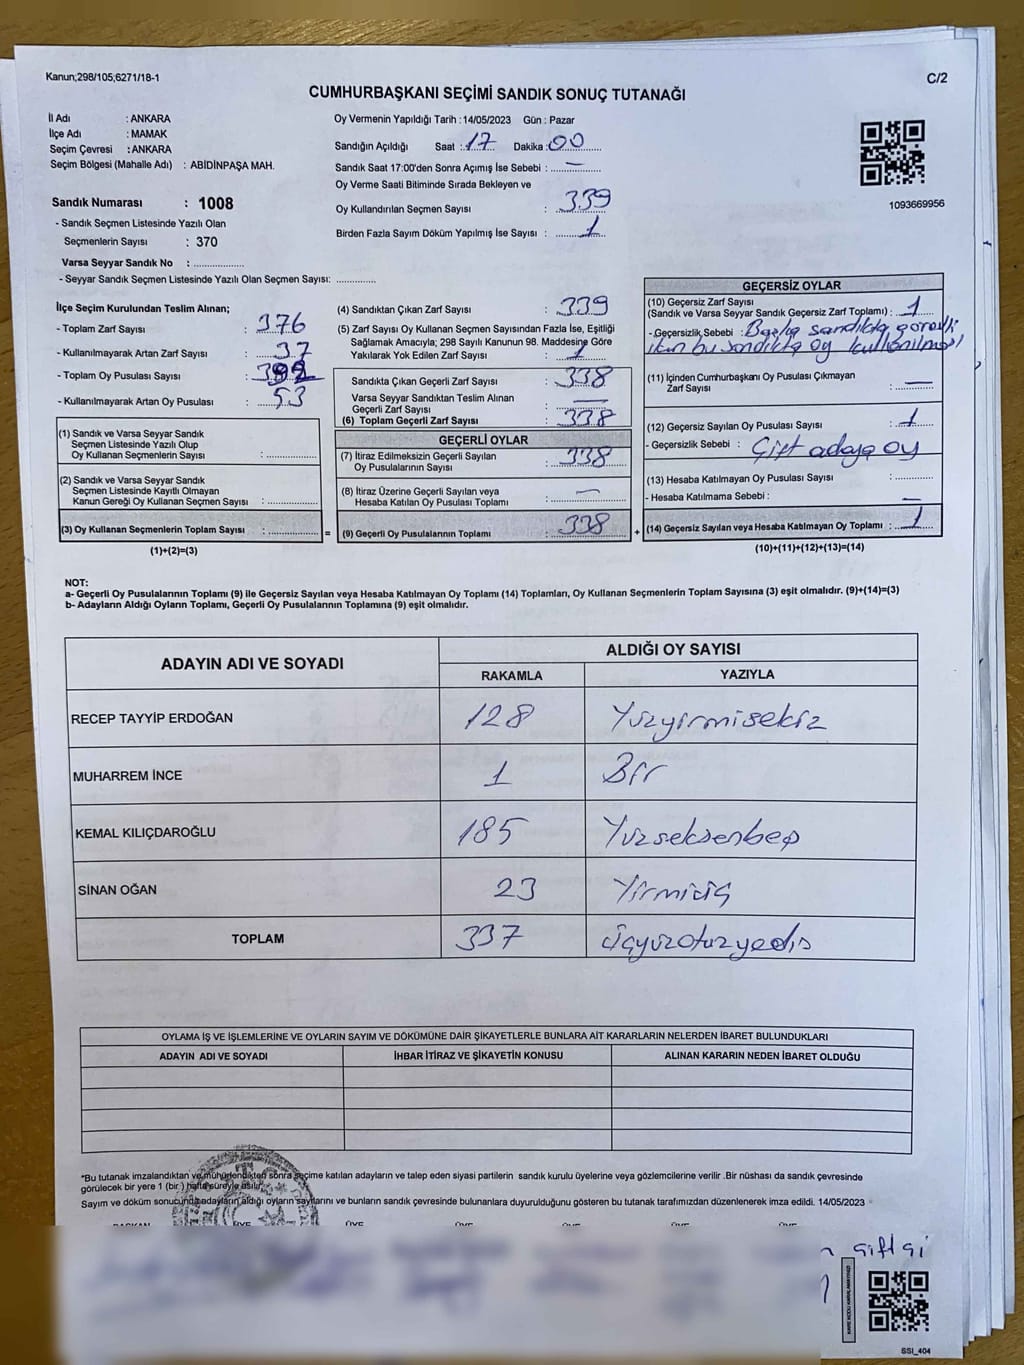 Kanun;298/105;6271/18-1
C/2
CUMHURBAŞKANI SEÇİMİ SANDIK SONUÇ TUTANAĞI
İl Adı : ANKARA
İlçe Adı : MAMAK
Seçim Çevresi : ANKARA
Seçim Bölgesi (Mahalle Adı) : ABİDİNPAŞA MAH.
Sandık Numarası : 1008
- Sandık Seçmen Listesinde Yazılı Olan
Seçmenlerin Sayısı : 370
Varsa Seyyar Sandık No : ..................
- Seyyar Sandık Seçmen Listesinde Yazılı Olan Seçmen Sayısı: ..............
Oy Vermenin Yapıldığı Tarih : 14/05/2023 Gün : Pazar
Sandığın Açıldığı Saat : 17 Dakika : 00
Sandık Saat 17:00'den Sonra Açımış İse Sebebi : —
Oy Verme Saati Bitiminde Sırada Bekleyen ve
Oy Kullandırılan Seçmen Sayısı : 339
Birden Fazla Sayım Döküm Yapılmış İse Sayısı : 1
1093669956
İlçe Seçim Kurulundan Teslim Alınan;
- Toplam Zarf Sayısı : 376
- Kullanılmayarak Artan Zarf Sayısı : 37
- Toplam Oy Pusulası Sayısı :
- Kullanılmayarak Artan Oy Pusulası : 53
(1) Sandık ve Varsa Seyyar Sandık
Seçmen Listesinde Yazılı Olup
Oy Kullanan Seçmenlerin Sayısı : ..............
(2) Sandık ve Varsa Seyyar Sandık
Seçmen Listesinde Kayıtlı Olmayan
Kanun Gereği Oy Kullanan Seçmen Sayısı : ..............
(3) Oy Kullanan Seçmenlerin Toplam Sayısı : ..............
(1)+(2)=(3)
(4) Sandıktan Çıkan Zarf Sayısı : 339
(5) Zarf Sayısı Oy Kullanan Seçmen Sayısından Fazla İse, Eşitliği
Sağlamak Amacıyla; 298 Sayılı Kanunun 98. Maddesine Göre
Yakılarak Yok Edilen Zarf Sayısı : 1
Sandıkta Çıkan Geçerli Zarf Sayısı : 338
Varsa Seyyar Sandıktan Teslim Alınan
Geçerli Zarf Sayısı : —
(6) Toplam Geçerli Zarf Sayısı : 338
GEÇERLİ OYLAR
(7) İtiraz Edilmeksizin Geçerli Sayılan
Oy Pusulalarının Sayısı : 338
(8) İtiraz Üzerine Geçerli Sayılan veya
Hesaba Katılan Oy Pusulası Toplamı : —
=
(9) Geçerli Oy Pusulalarının Toplamı : 338
+
GEÇERSİZ OYLAR
(10) Geçersiz Zarf Sayısı
(Sandık ve Varsa Seyyar Sandık Geçersiz Zarf Toplamı) : 1
- Geçersizlik Sebebi : Başka sandıkta görevli
iken bu sandıkta oy kullanılması
(11) İçinden Cumhurbaşkanı Oy Pusulası Çıkmayan
Zarf Sayısı : —
(12) Geçersiz Sayılan Oy Pusulası Sayısı : 1
- Geçersizlik Sebebi : Çift adaya oy
(13) Hesaba Katılmayan Oy Pusulası Sayısı : ..............
- Hesaba Katılmama Sebebi : —
(14) Geçersiz Sayılan veya Hesaba Katılmayan Oy Toplamı : 1
(10)+(11)+(12)+(13)=(14)
NOT:
a- Geçerli Oy Pusulalarının Toplamı (9) ile Geçersiz Sayılan veya Hesaba Katılmayan Oy Toplamı (14) Toplamları, Oy Kullanan Seçmenlerin Toplam Sayısına (3) eşit olmalıdır. (9)+(14)=(3)
b- Adayların Aldığı Oyların Toplamı, Geçerli Oy Pusulalarının Toplamına (9) eşit olmalıdır.
ADAYIN ADI VE SOYADI
ALDIĞI OY SAYISI
RAKAMLA YAZIYLA
RECEP TAYYİP ERDOĞAN 128 Yüzyirmisekiz
MUHARREM İNCE 1 Bir
KEMAL KILIÇDAROĞLU 185 Yüzseksenbeş
SİNAN OĞAN 23 Yirmiüç
TOPLAM 337 üçyüzotuzyedi
OYLAMA İŞ VE İŞLEMLERİNE VE OYLARIN SAYIM VE DÖKÜMÜNE DAİR ŞİKAYETLERLE BUNLARA AİT KARARLARIN NELERDEN İBARET BULUNDUKLARI
ADAYIN ADI VE SOYADI İHBAR İTİRAZ VE ŞİKAYETİN KONUSU ALINAN KARARIN NEDEN İBARET OLDUĞU
*Bu tutanak imzalandıktan ve mühürlendikten sonra seçime katılan adayların ve talep eden siyasi partilerin sandık kurulu üyelerine veya gözlemcilerine verilir .Bir nüshası da sandık çevresinde
görülecek bir yere 1 (bir ) hafta süreyle asılır.
Sayım ve döküm sonucunda adayların aldığı oyların sayılarını ve bunların sandık çevresinde bulunanlara duyurulduğunu gösteren bu tutanak tarafımızdan düzenlenerek imza edildi. 14/05/2023
BAŞKAN ÜYE ÜYE ÜYE ÜYE ÜYE ÜYE
çiftçi
SSI_404